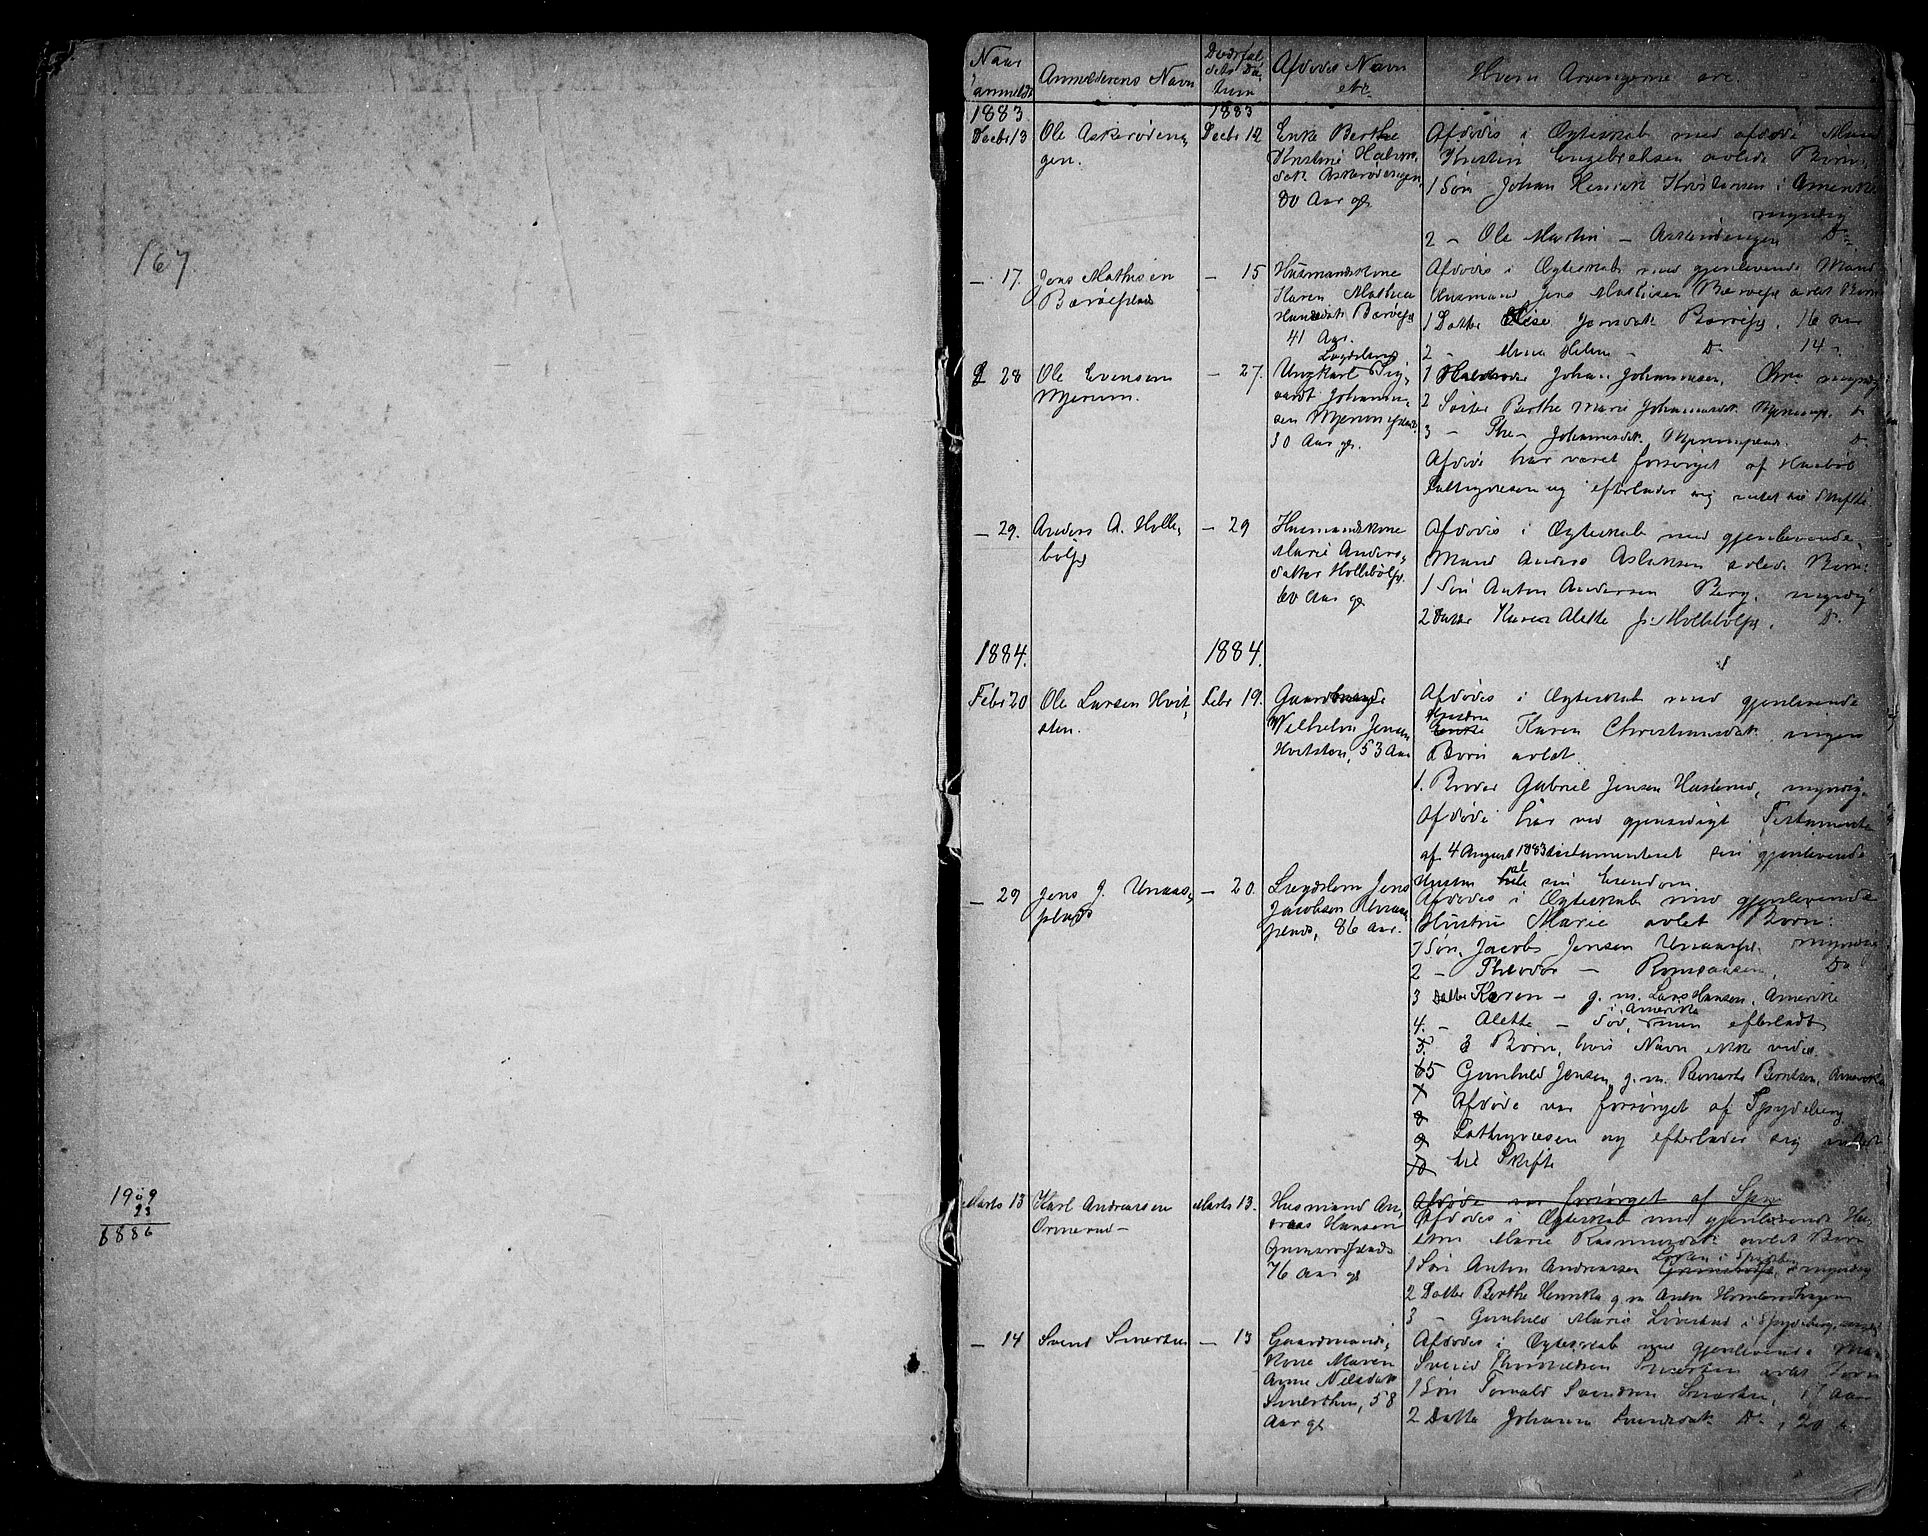 167.
1909
23
1886
Naar anmeldt
Anmelderens Navn
Dødsfaldets Datum
Afdødes Navn etc
Hvem Arvingerne ere
1883
1883
Decbr 13
Ole Askerøden-
gen.
Decbr 12
Enke Berthe
Kristine Halvors
datr Askerødengen,
80 Aar gl.
Afdødes i Ægteskab med afdøde Mand
Kristen Engebretsen avlede Børn:
1 Søn Johan Henrik Kristensen i Amerika
myndig
2 — Ole Martin — Askerødengen Do
— 17.
Jens Mathisen
Bærøeplads
— 15
Husmandskone
Karen Mathea
Hansdatr Bærøepl
41 Aar.
Afdødes i Ægteskab med gjenlevende Mand
Husmand Jens Mathisen Bærøepl avlet Børn
1 Datter Elise Jensdatr Bærøepl. 16 aar
2 — Anna Helene — Do 14 "
28
Ole Evensen
Mjerum.
— 27.
Lægdslem
Ungkarl Sig-
vardt Johannes-
sen Mjerumeplads
30 Aar gl.
1 Halvbroder Johan Johannesen, Chra myndig
2 Søster Berthe Marie Johannesdatr Mjerumepl. Do
3 — Johannesdatr Mjerumeplads. Do
Afdøde har været forsørget af Haabøl
Fattigvæsen og efterlader sig intet til Skifte
— 29.
Anders A. Holle-
bølpl
— 29
Husmandskone
Marie Anders-
datter Hollebølpl.
60 Aar gl
Afdødes i Ægteskab med gjenlevende
Mand Anders Aslaksen avlede Børn:
1 Søn Anton Andersen Berg, myndig
2 Datter Karen Alette p: Hollebølpl. Do
1884.
1884.
Febr 20
Ole Larsen Hvit-
sten.
Febr 19.
Gaardbruger
Wilhelm Jensen
Hvitsten, 53 Aar
Afdødes i Ægteskab med gjenlevende
Hustru Karen Christiansdatr ingen
Børn avlet.
1. Broder Gabriel Jensen Haslerud, myndig.
Afdøde har ved gjensidigt Testamente
af 4 August 1883 testamenteret sin gjenlevende
Hustru al sin Eiendom.
— 29
Jens J. Unaas-
plads
— 20.
Lægdslem Jens
Jacobsen Unaas-
plads, 86 Aar.
Afdødes i Ægteskab med gjenlevende
Hustru Marie avlet Børn:
1 Søn, Jacob Jensen Unaaspl. myndig
2 — Theodor — Romsaasen, Do
3 Datter Karen — g. m. Lars Hansen, Amerika
i Amerika
4. — Alette — død, men efterladt
5. 3 Børn, hvis Navn ikke vides.
6 5 Gunhild Jensen, g. m. Bernt Berntsen, Amerika
7
8 Afdøde var forsørget af Spydeberg
9 Fattigvæsen og efterlader sig intet
10 til Skifte
Marts 13
Karl Andreassen
Ormerud —
Marts 13.
Husmand An-
dreas Hansen
Grimsrødplads
76 Aar gl
Afdøde var forsørget af Spy
Afdødes i Ægteskab med gjenlevende Hu-
stru Marie Rasmusdatr avlet Børn
Løvstad i Spydeberg
1 Søn Anton Andreassen Grimsrødpl, myndig
2 Datter Berthe Henrikke g. m Anton
3 — Gunhild Marie Løvstad i Spydeberg,
— 14
Svend Smerten
— 13
Gaardmands-
kone Maren
Anne Nilsdatr
Smerthen, 58
Aar gl
Afdødes i Ægteskab med gjenlevende Mand
Svend Thorvaldsen Smerten avlet Børn
1 Søn Torvald Svendsen Smerten, 17 aar
2 Datter Johanne Svendsdatr Do, 20 "